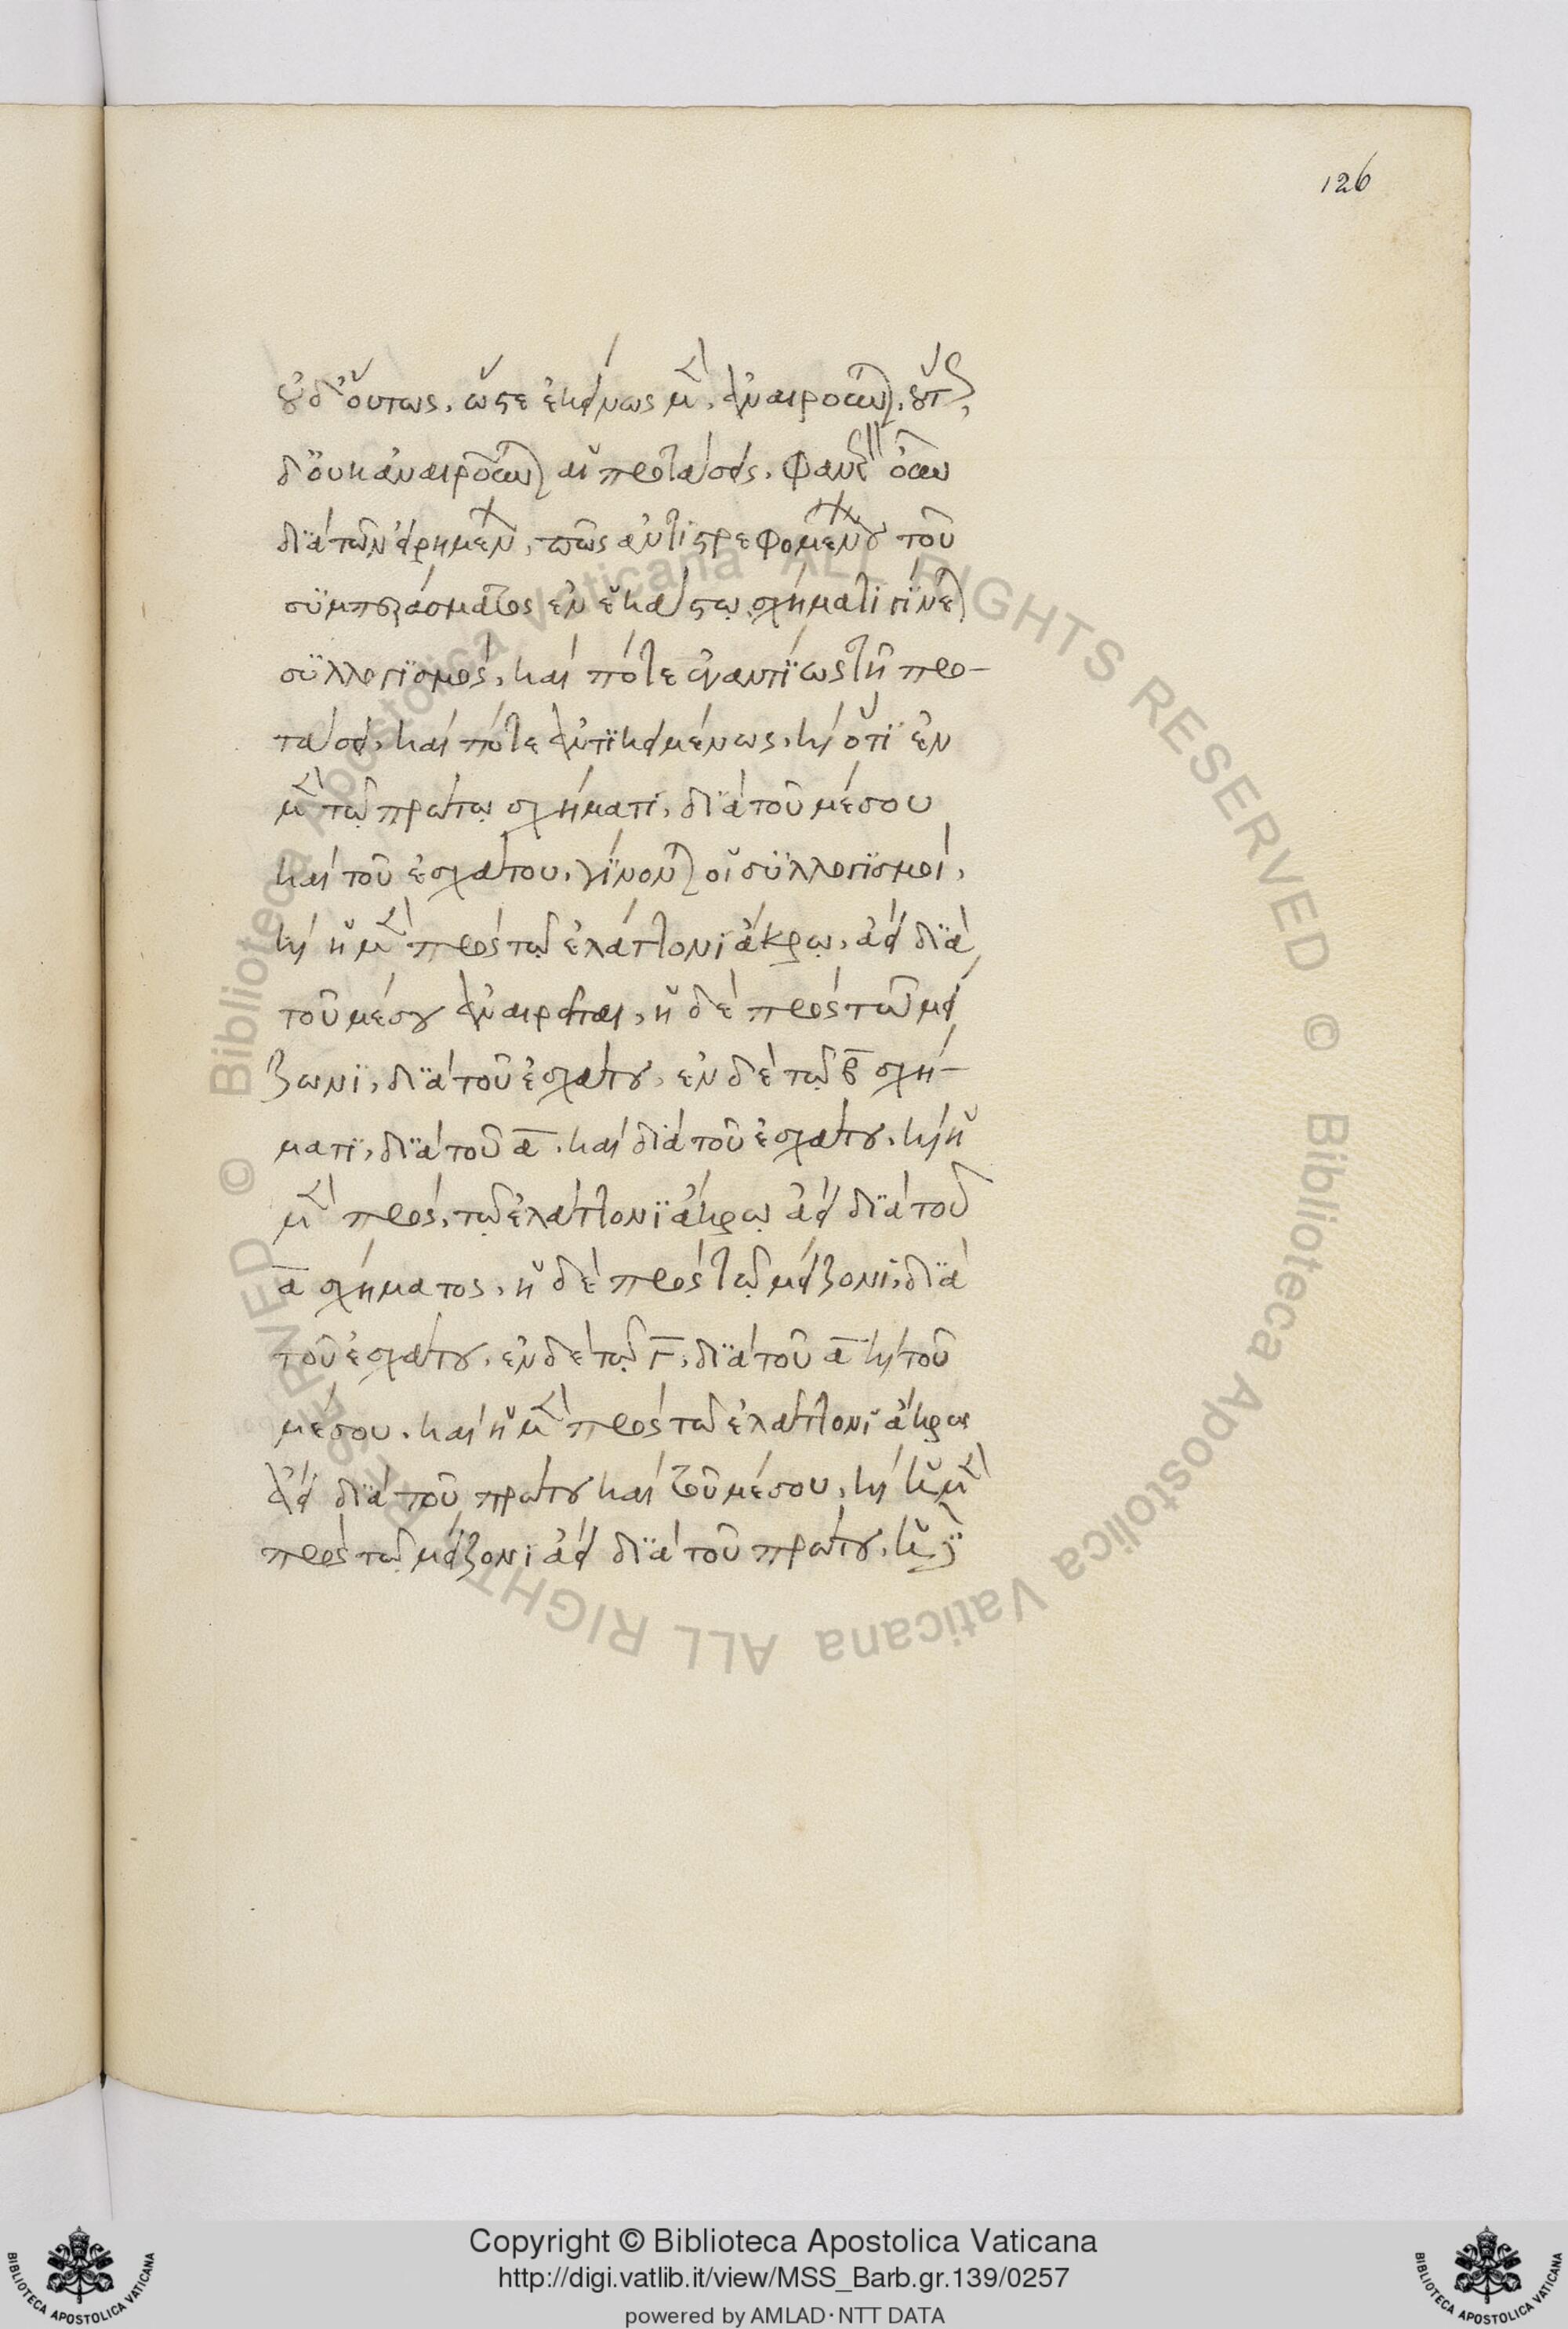 126
οὐδ' οὕτως. ὥστε ἐκείνως μὲν ἀναιροῦνται, οὕτως
δ' οὐκ ἀναιροῦνται αἱ προτάσεις. φανερὸν οὖν
διὰ τῶν εἰρημένων, πῶς ἀντιστρεφομένου τοῦ
συμπεράσματος ἐν ἑκάστῳ σχήματι γίνεται
συλλογισμός, καὶ πότε ἐναντίως τῇ προ-
τάσει, καὶ πότε ἀντικειμένως, καὶ ὅτι ἐν
μὲν τῷ πρώτῳ σχήματι, διὰ τοῦ μέσου
καὶ τοῦ ἐσχάτου, γίνονται οἱ συλλογισμοί,
καὶ ἡ μὲν πρὸς τῷ ἐλάττονι ἄκρῳ, ἀεὶ διὰ
τοῦ μέσου ἀναιρεῖται, ἡ δὲ πρὸς τῷ μεί
ζωνι, διὰ τοῦ ἐσχάτου, ἐν δὲ τῷ β σχή-
ματι, διὰ τοῦ α. καὶ διὰ τοῦ ἐσχάτου, καὶ ἡ
μὲν πρὸς, τῷ ἐλάττονι ἄκρῳ ἀεὶ διὰ τοῦ
α σχήματος, ἡ δὲ πρὸς τῷ μείζονι, διὰ
τοῦ ἐσχάτου, ἐν δὲ τῷ γ, διὰ τοῦ α καὶ τοῦ
μέσου. καὶ ἡ μὲν πρὸς τῷ ἐλάττονι ἄκρῳ
ἀεὶ διὰ τοῦ πρώτου καὶ τοῦ μέσου, καὶ ἡ μὲν
πρὸς τῷ μείζονι ἀεὶ διὰ τοῦ πρώτου,
© Biblioteca Apostolica Vaticana ALL RIGHTS RESERVED © Biblioteca Apostolica Vaticana ALL RIGHTS RESERVED
Copyright © Biblioteca Apostolica Vaticana
http://digi.vatlib.it/view/MSS_Barb.gr.139/0257
powered by AMLAD·NTT DATA
BIBLIOTECA APOSTOLICA VATICANA
BIBLIOTECA APOSTOLICA VATICANA